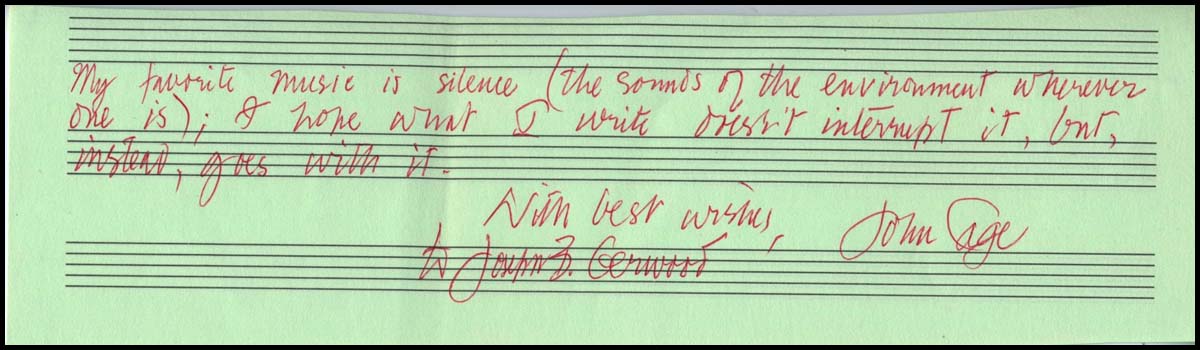 My favorite music is silence (the sounds of the environment wherever
one is); I hope what I write doesn't interrupt it, but,
instead, goes with it.
With best wishes, John Cage
to Joseph B. Gerwood